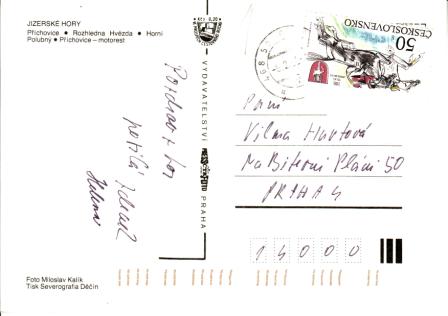 JIZERSKÉ HORY
Příchovice • Rozhledna Hvězda • Horní
Polubný • Příchovice – motorest
Kčs 0,20
VYDAVATELSTVÍ
PRAHA
Pozdrav z hor
posílá
Helena
ČESKOSLOVENSKO
50
468 5
Paní
Vilma Hurtová
Na Bitevní Pláni 50
PRAHA 4
14000
Foto Miloslav Kalík
Tisk Severografia Děčín